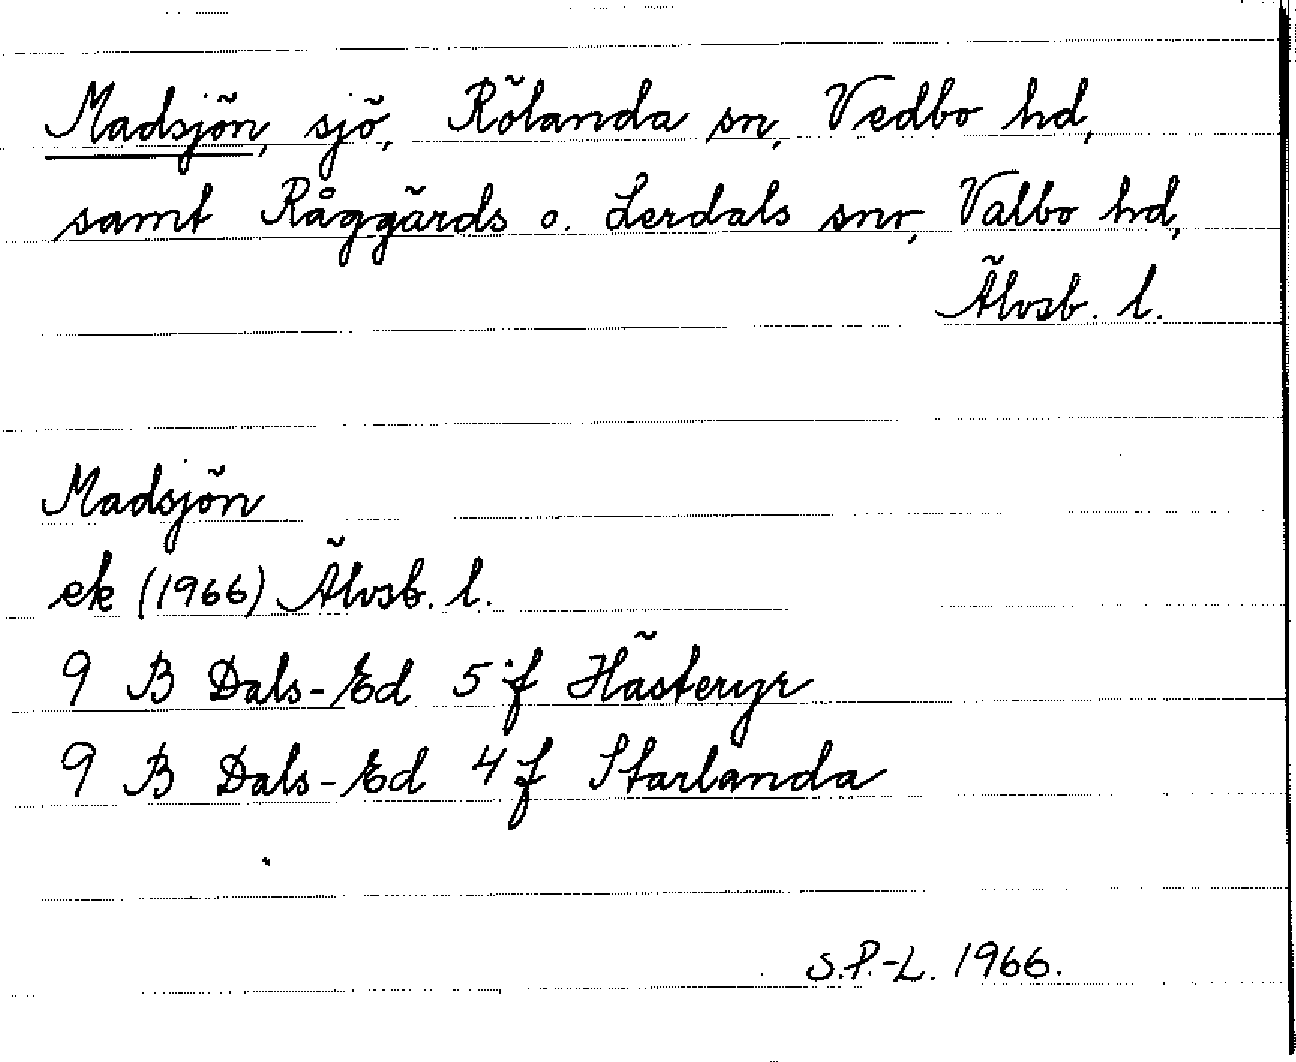 Madsjön, sjö, Rölanda sn, Vedbo hd,
samt Råggärds o. Lerdals snr, Valbo hd,
Älvsb. l.
Madsjön
ek (1966) Älvsb. l.
9 B Dals-Ed 5 f Hästeryr
9 B Dals-Ed 4 f Starlanda
S.P.-L. 1966.